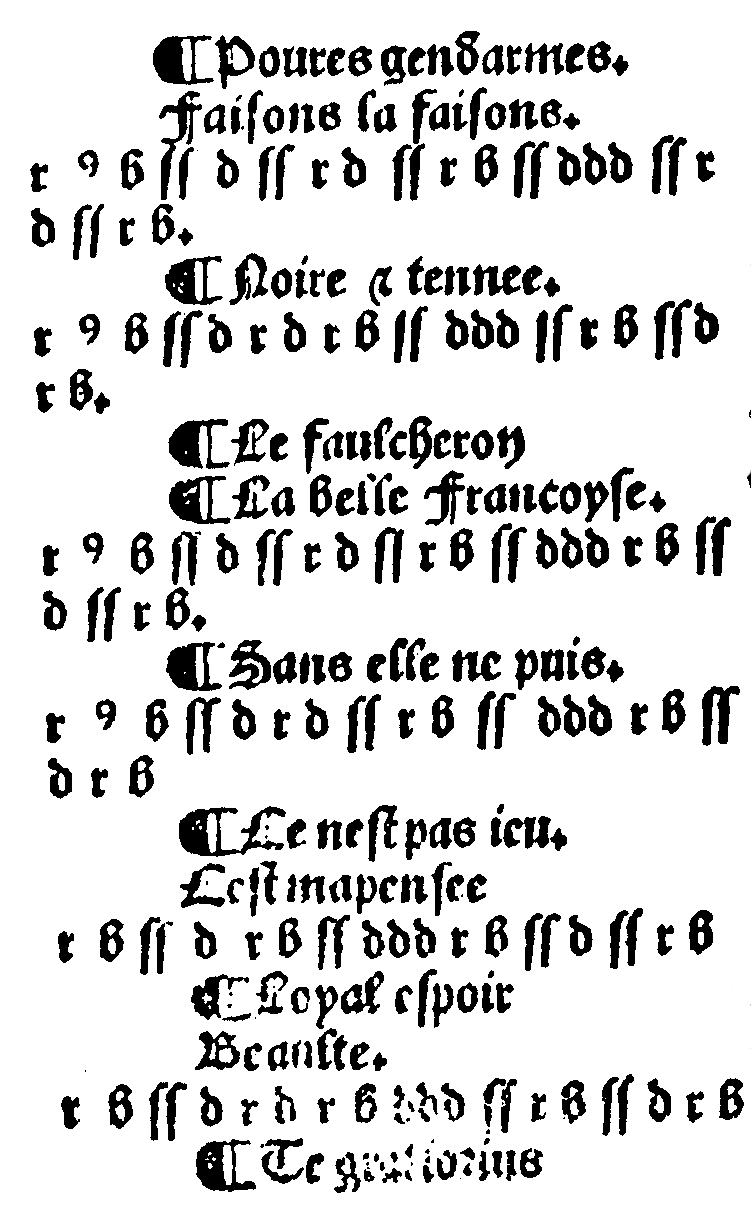 ¶ Poures gendarmes.
Faisons la faisons.
r ꝯ b ſſ d ſſ r d ſſ r b ſſ ddd ſſ r
d ſſ r b.
¶ Noire ⁊ tennee.
r ꝯ b ſſ d r d r b ſſ ddd ſſ r b ſſ d
r b.
¶ Le faulcheron
¶ La belle Francoyse.
r ꝯ b ſſ d ſſ r d ſſ r b ſſ ddd r b ſſ
d ſſ r b.
¶ Sans elle ne puis.
r ꝯ b ſſ d r d ſſ r b ſſ ddd r b ſſ
d r b
¶ Ce nest pas ieu.
Cest mapensee
r b ſſ d r b ſſ ddd r b ſſ d ſſ r b
¶ Loyal espoir
Beaulte.
r b ſſ d r d r b ddd ſſ r b ſſ d r b
¶ Te